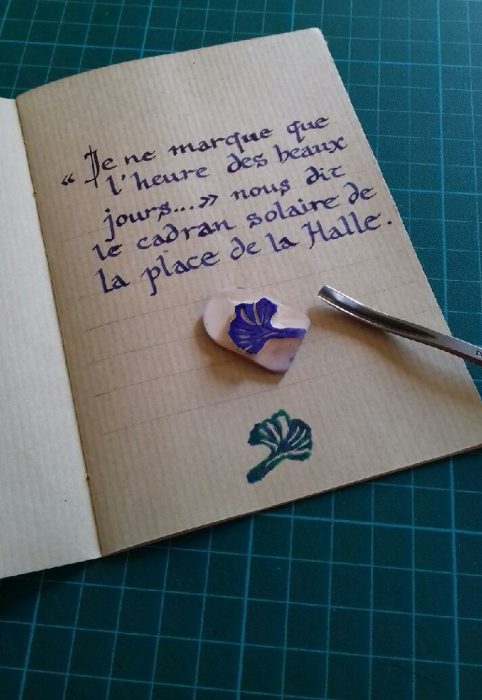 « Je ne marque que
l'heure des beaux
jours...» nous dit
le cadran solaire de
la place de la Halle.